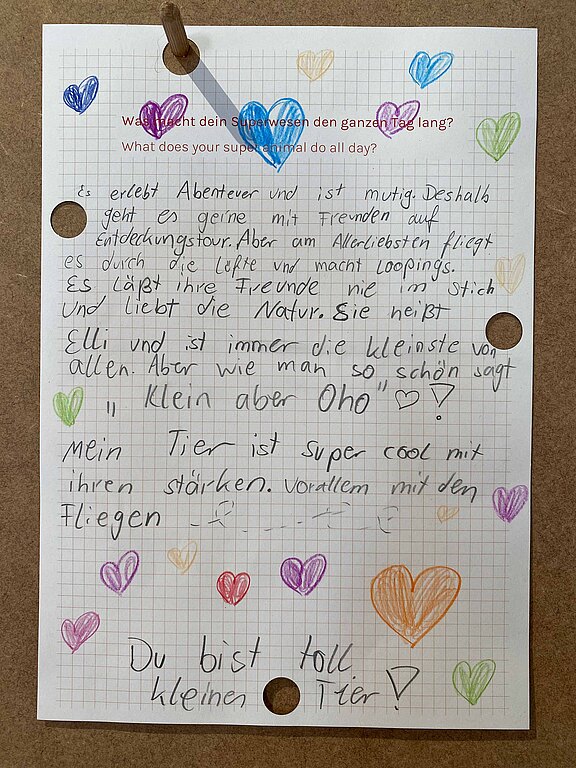 Was macht dein Superwesen den ganzen Tag lang?
What does your super animal do all day?
Es erlebt Abenteuer und ist mutig. Deshalb
geht es gerne mit Freunden auf
Entdeckungstour. Aber am Allerliebsten fliegt
es durch die Lüfte und macht Loopings.
Es läßt ihre Freunde nie im Stich
und liebt die Natur. Sie heißt
Elli und ist immer die kleinste von
allen. Aber wie man so schön sagt
„Klein aber Oho" ♡!
Mein Tier ist super cool mit
ihren stärken. Vorallem mit den
Fliegen
Du bist toll
kleines Tier!